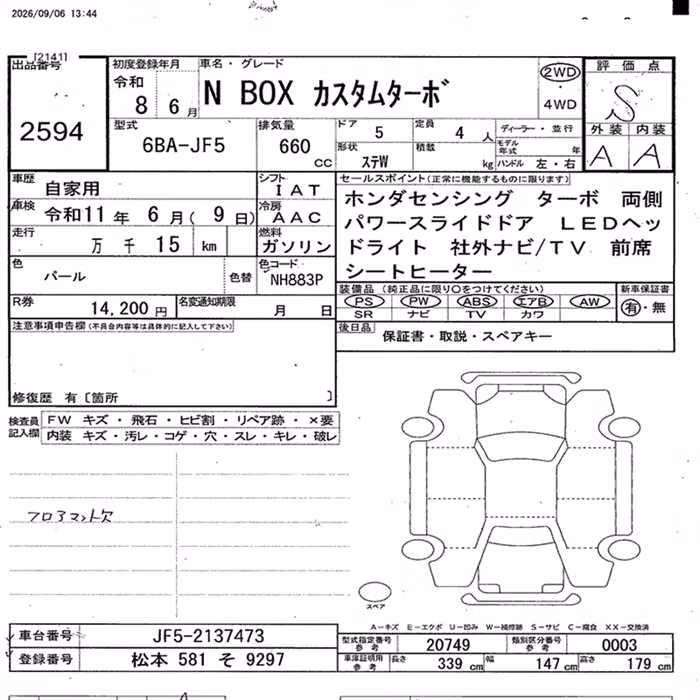 2026/09/06 13:44
[2141]
出品番号
2594
初度登録年月
令和 8 6 月
車名・グレード
N BOX カスタムターボ
2WD
4WD
評価点
S
外装 内装
A A
型式
6BA-JF5
排気量
660 cc
ドア 5
定員 4 人
形状 ステW
積載 kg
ディーラー・並行
モデル年式 年
ハンドル 左・右
車歴 自家用
シフト IAT
車検 令和11年 6月( 9日)
冷房 AAC
走行 万 千 15 km
燃料 ガソリン
色 パール 色替
色コード NH883P
セールスポイント(正常に機能するものに限ります)
ホンダセンシング ターボ 両側
パワースライドドア LEDヘッ
ドライト 社外ナビ/TV 前席
シートヒーター
装備品(純正品に限り○をつけてください)
PS PW ABS エアB AW
SR ナビ TV カワ
新車保証書
有・無
R券 14,200 円
名変通知期限 月 日
後日品 保証書・取説・スペアキー
注意事項申告欄(不具合内容等は具体的に記入して下さい)
修復歴 有〔箇所 〕
検査員記入欄
FW キズ・飛石・ヒビ割・リペア跡・×要
内装 キズ・汚レ・コゲ・穴・スレ・キレ・破レ
フロアマット欠
スペア
A-キズ E-エクボ U-凹み W-補修跡 S-サビ C-腐食 XX-交換済
車台番号 JF5-2137473
登録番号 松本 581 そ 9297
型式指定番号 参考 20749
類別区分番号 参考 0003
車庫証明用 参考 長さ 339 cm 幅 147 cm 高さ 179 cm